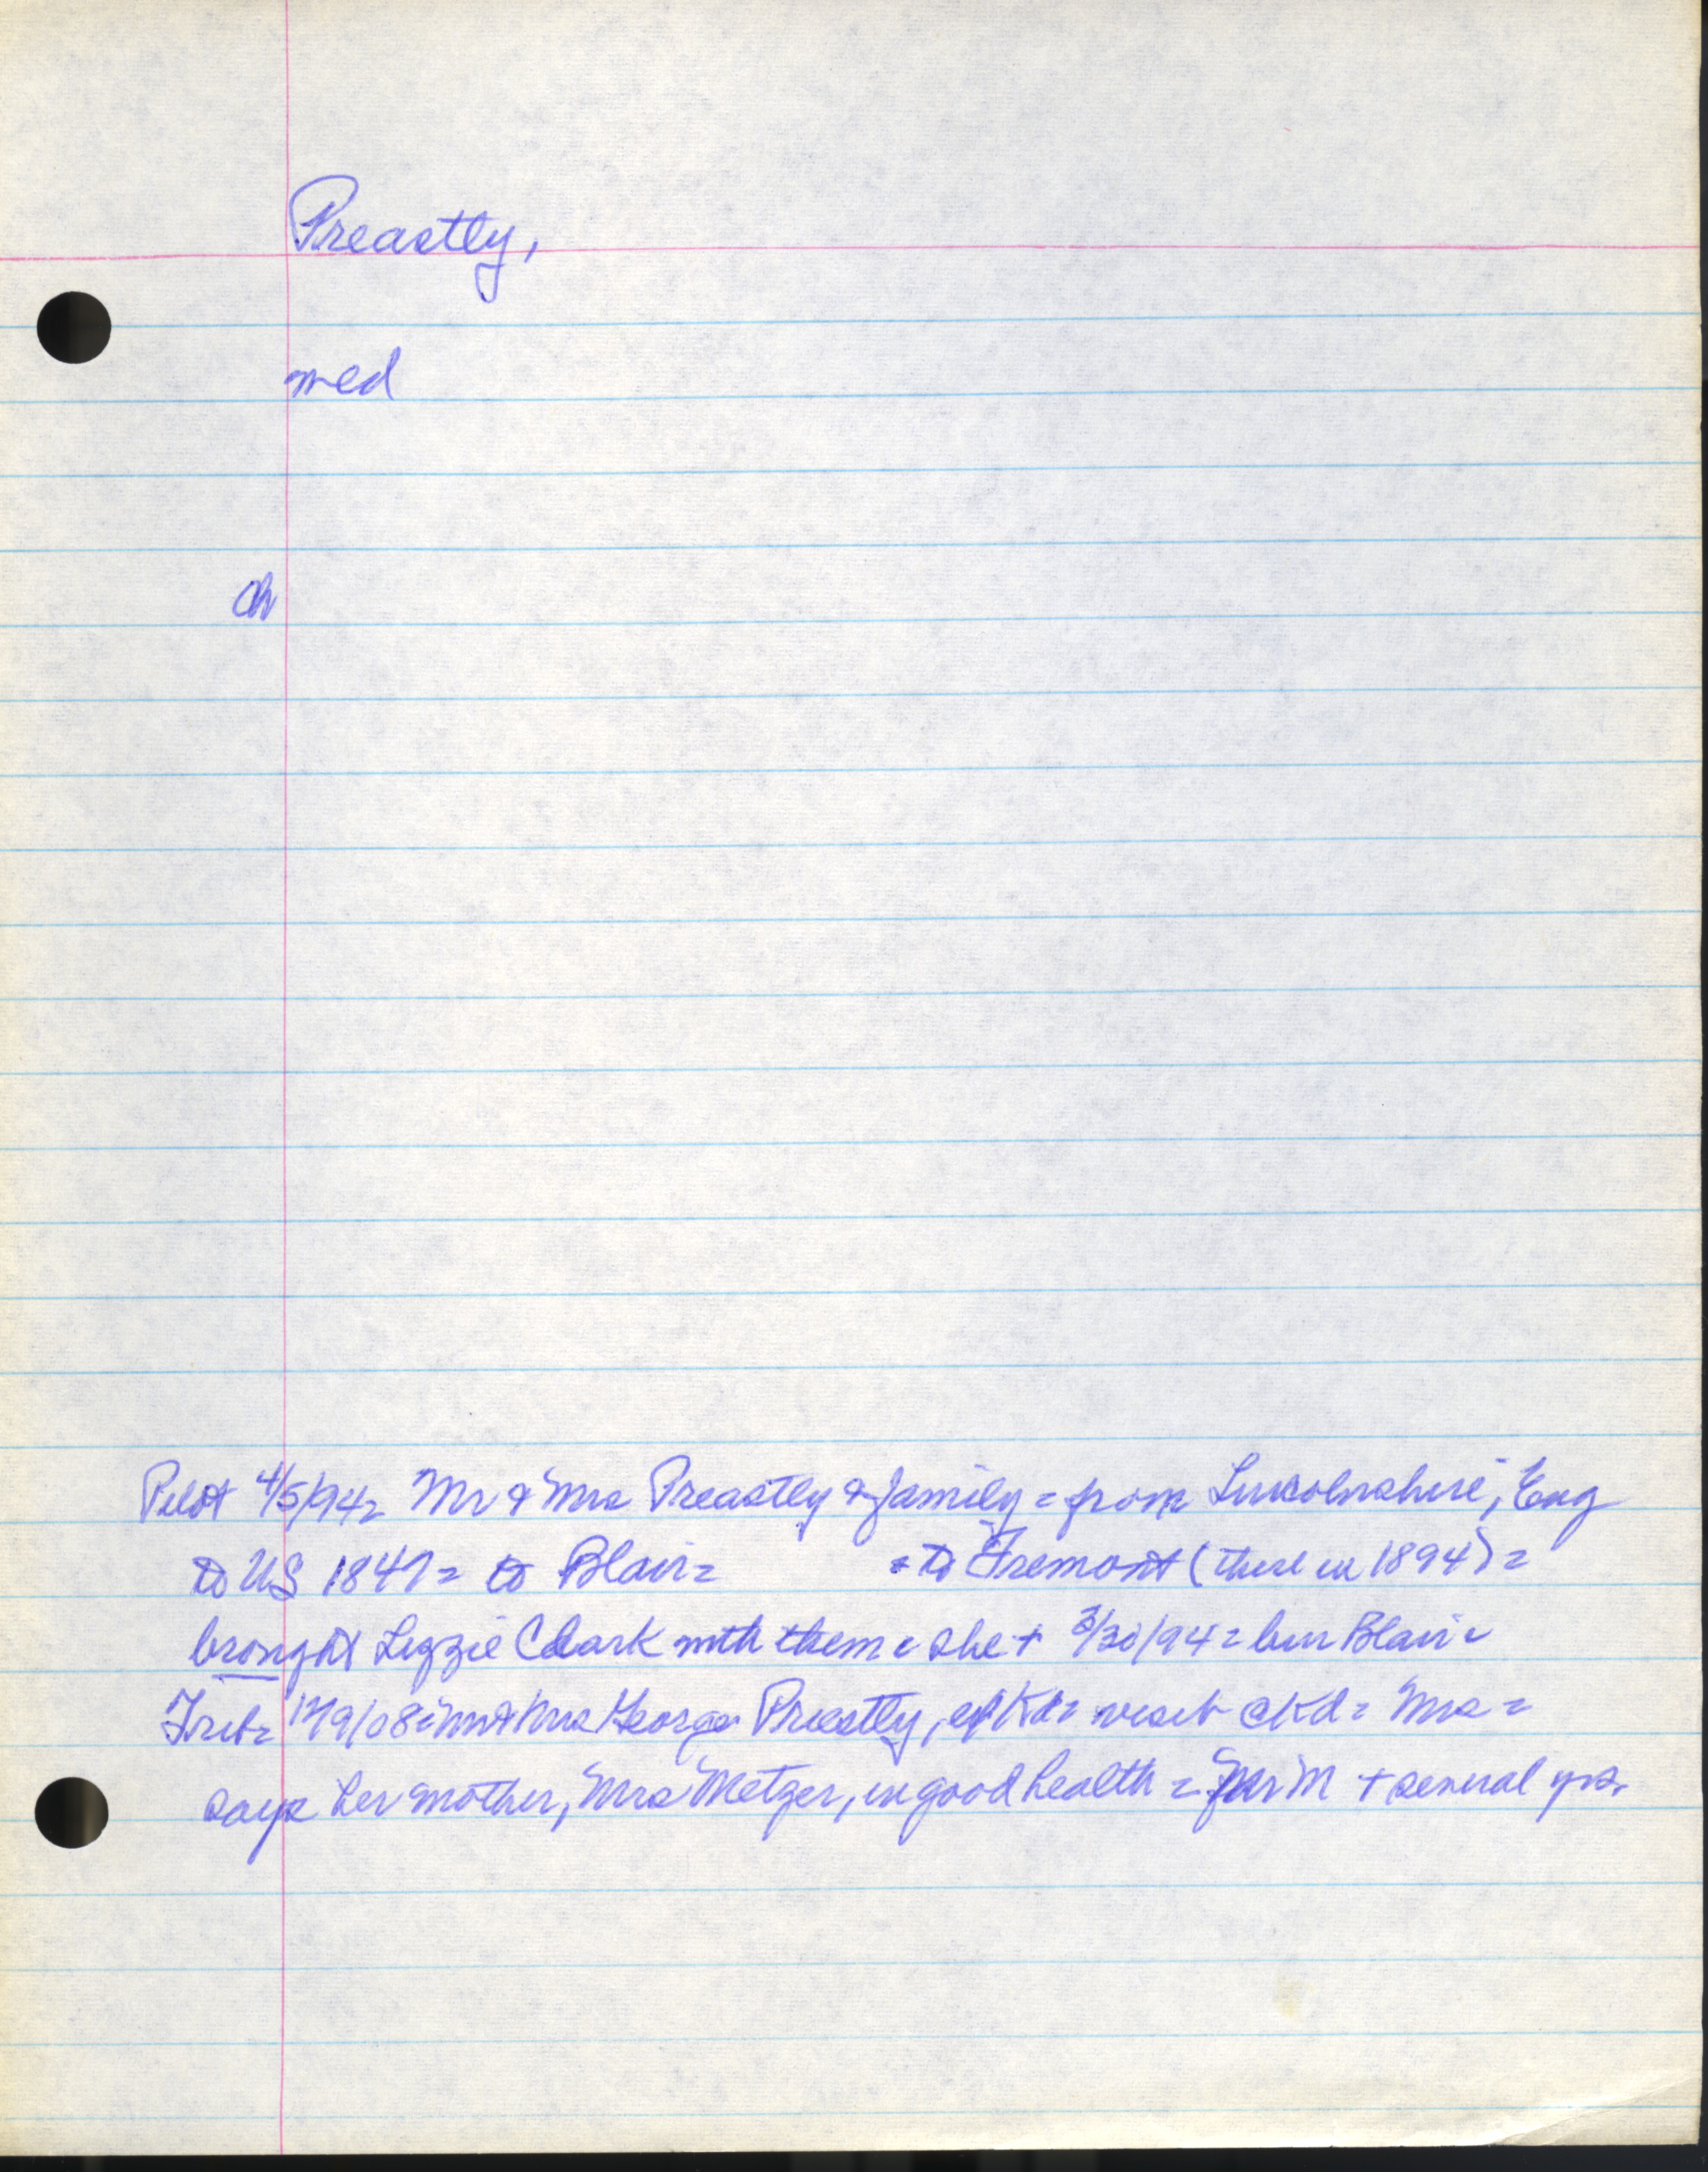 Preastly,
med
ch
Pilot 4/5/94= Mr & Mrs Preastly & family = from Lincolnshire, Eng
to US 1847= to Blair= = to Fremont (there in 1894) =
brought Lizzie Clark with them = she + 3/30/94 = bur Blair =
Trib= Mrs George Priestly, visit Mrs =
says her mother, Mrs Metzer, in good health = Mr M + several yrs.